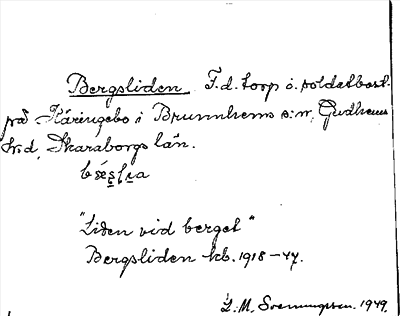 Bergsliden F.d. torp o. soldatbost.
på Käringebo i Brunnhems s:n, Gudhems
hd, Skaraborgs län.
"Liden vid berget"
Bergsliden kb. 1918-47.
L. M. Svenungsson. 1949.